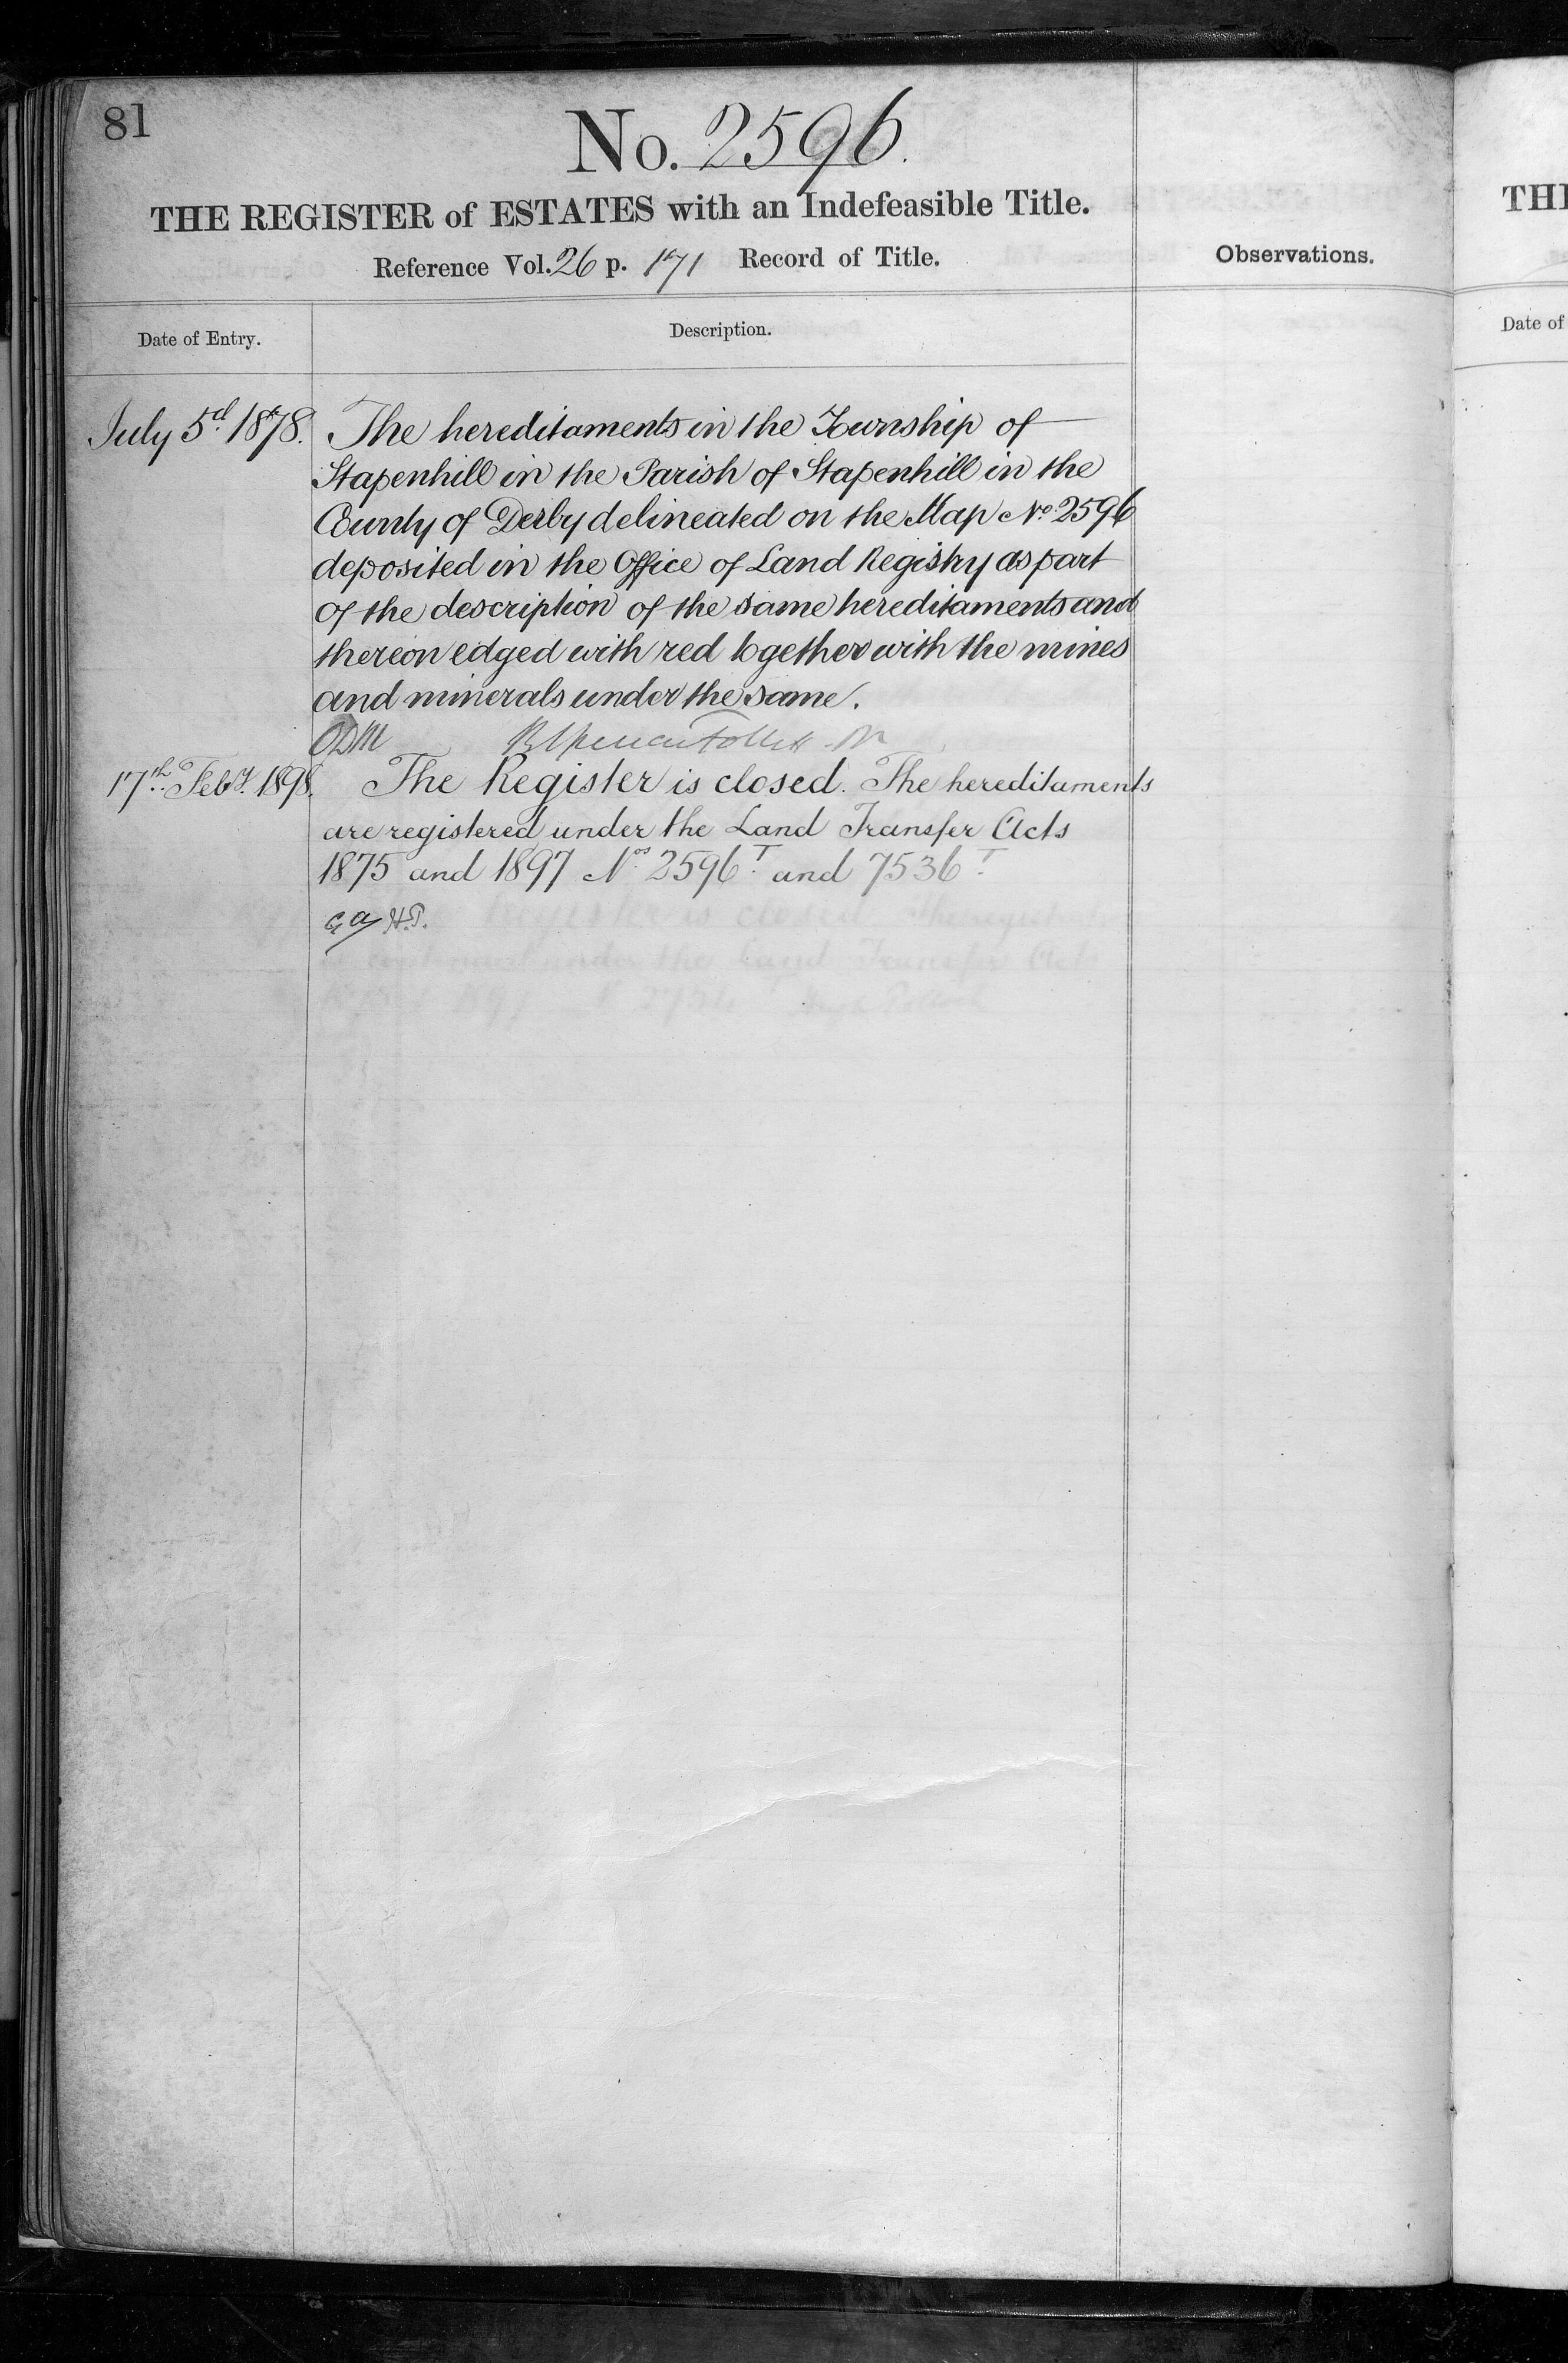 81
No. 2596.
THE REGISTER of ESTATES with an Indefeasible Title.
Reference Vol. 26 p. 171 Record of Title.
Observations.
Date of Entry.
Description.
July 5d. 1878.
The hereditaments in the Township of
Stapenhill in the Parish of Stapenhill in the
County of Derby delineated on the Map No. 2596
deposited in the Office of Land Registry as part
of the description of the same hereditaments and
thereon edged with red together with the mines
and minerals under the same.
ODM
17th. Feby. 1898.
The Register is closed. The hereditaments
are registered under the Land Transfer Acts
1875 and 1897 Nos. 2596T. and 7536T.
H.P.
THE
Date of